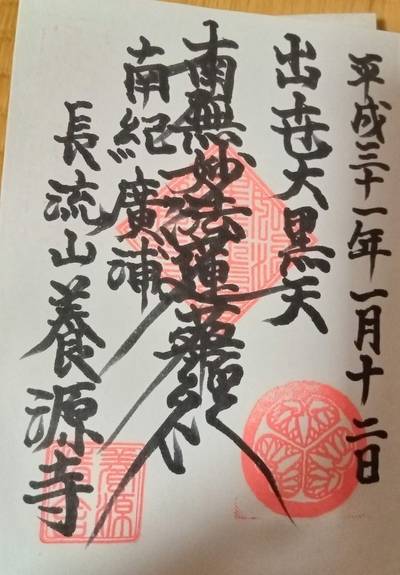 平成三十一年一月十二日
出世大黒天
南無妙法蓮華経
南紀廣浦
長流山養源寺